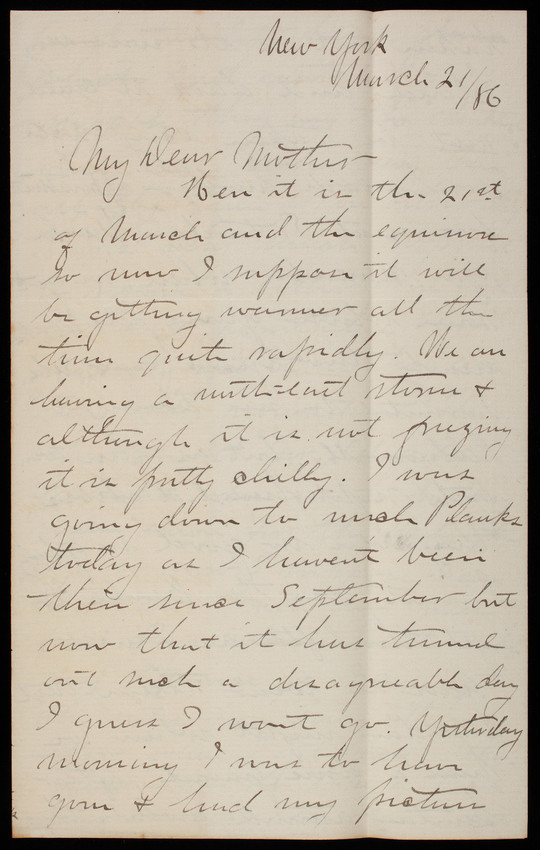 New York
March 21/86
My Dear Mother
Here it is the 21st
of March and the equinox
so now I suppose it will
be getting warmer all the
time quite rapidly. We are
having a north-east storm &
although it is not freezing
it is pretty chilly. I was
going down to Planks
today as I havent been
there since September but
now that it has turned
out such a disagreeable day
I guess I wont go. Yesterday
morning I was to have
gone & had my picture